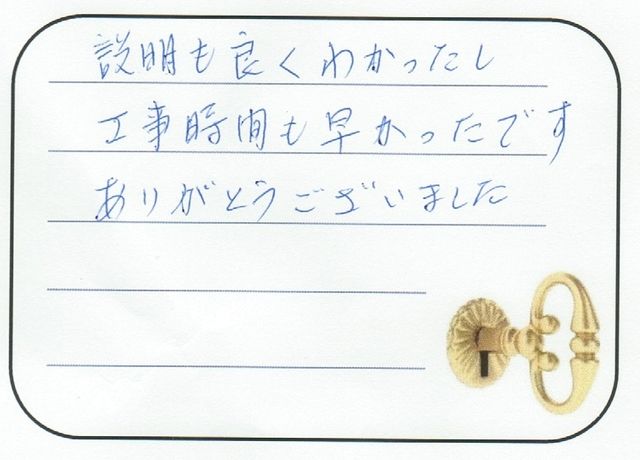 説明も良くわかったし
工事時間も早かったです
ありがとうございました